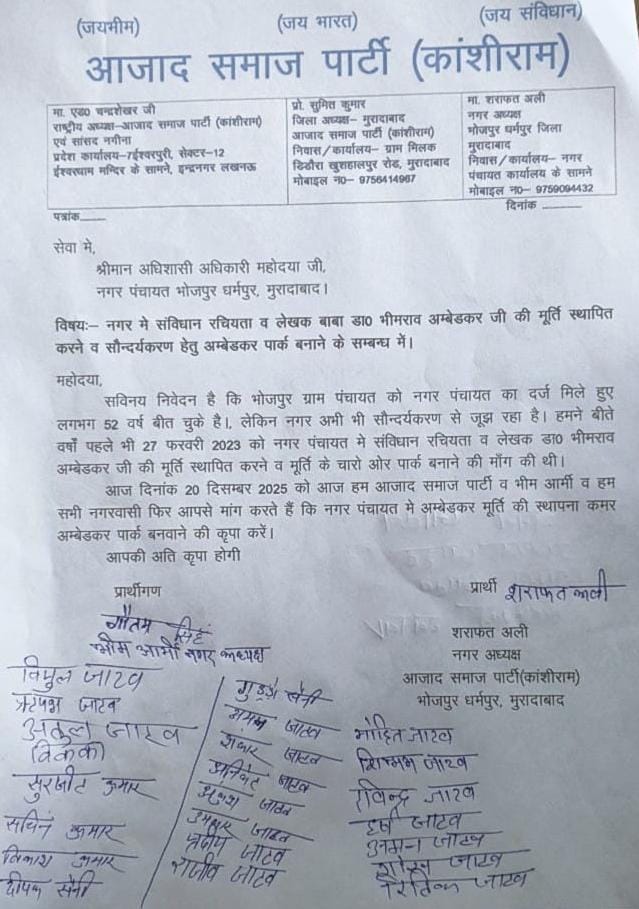 (जयभीम) (जय भारत) (जय संविधान)
आजाद समाज पार्टी (कांशीराम)
मा. एड0 चन्द्रशेखर जी
राष्ट्रीय अध्यक्ष–आजाद समाज पार्टी (कांशीराम)
एवं सांसद नगीना
प्रदेश कार्यालय–7ईश्वरपुरी, सेक्टर–12
ईश्वरधाम मन्दिर के सामने, इन्द्रनगर लखनऊ
प्रो. सुमित कुमार
जिला अध्यक्ष– मुरादाबाद
आजाद समाज पार्टी (कांशीराम)
निवास/कार्यालय– ग्राम मिलक
डिडौरा खुशहालपुर रोड, मुरादाबाद
मोबाइल न0– 9756414967
मा. शराफत अली
नगर अध्यक्ष
भोजपुर धर्मपुर जिला
मुरादाबाद
निवास/कार्यालय– नगर
पंचायत कार्यालय के सामने
मोबाइल न0– 9759094432
पत्रांक____ दिनांक ____
सेवा मे,
श्रीमान अधिशासी अधिकारी महोदया जी,
नगर पंचायत भोजपुर धर्मपुर, मुरादाबाद।
विषयः– नगर मे संविधान रचियता व लेखक बाबा डा0 भीमराव अम्बेडकर जी की मूर्ति स्थापित
करने व सौन्दर्यकरण हेतु अम्बेडकर पार्क बनाने के सम्बन्ध में।
महोदया,
सविनय निवेदन है कि भोजपुर ग्राम पंचायत को नगर पंचायत का दर्ज मिले हुए
लगभग 52 वर्ष बीत चुके है।, लेकिन नगर अभी भी सौन्दर्यकरण से जूझ रहा है। हमने बीते
वर्षों पहले भी 27 फरवरी 2023 को नगर पंचायत मे संविधान रचियता व लेखक डा0 भीमराव
अम्बेडकर जी की मूर्ति स्थापित करने व मूर्ति के चारो ओर पार्क बनाने की माँग की थी।
आज दिनांक 20 दिसम्बर 2025 को आज हम आजाद समाज पार्टी व भीम आर्मी व हम
सभी नगरवासी फिर आपसे मांग करते हैं कि नगर पंचायत मे अम्बेडकर मूर्ति की स्थापना कमर
अम्बेडकर पार्क बनवाने की कृपा करें।
आपकी अति कृपा होगी
प्रार्थीगण
प्रार्थी शराफत अली
गौतम सिंह
भीम आर्मी नगर अध्यक्ष
शराफत अली
नगर अध्यक्ष
आजाद समाज पार्टी(कांशीराम)
भोजपुर धर्मपुर, मुरादाबाद
विपुल जाटव
जाटव
अतुल जाटव
विक्की
सुरजीत कुमार
सचिन कुमार
विकाश कुमार
दीपक सैनी
सैनी
जाटव
शंकर जाटव
अनिकेट जाटव
जाटव
जाटव
प्रदीप जाटव
राजीव जाटव
मोहित जाटव
जाटव
रविन्द्र जाटव
हर्ष जाटव
अमन जाटव
जाटव
जाटव